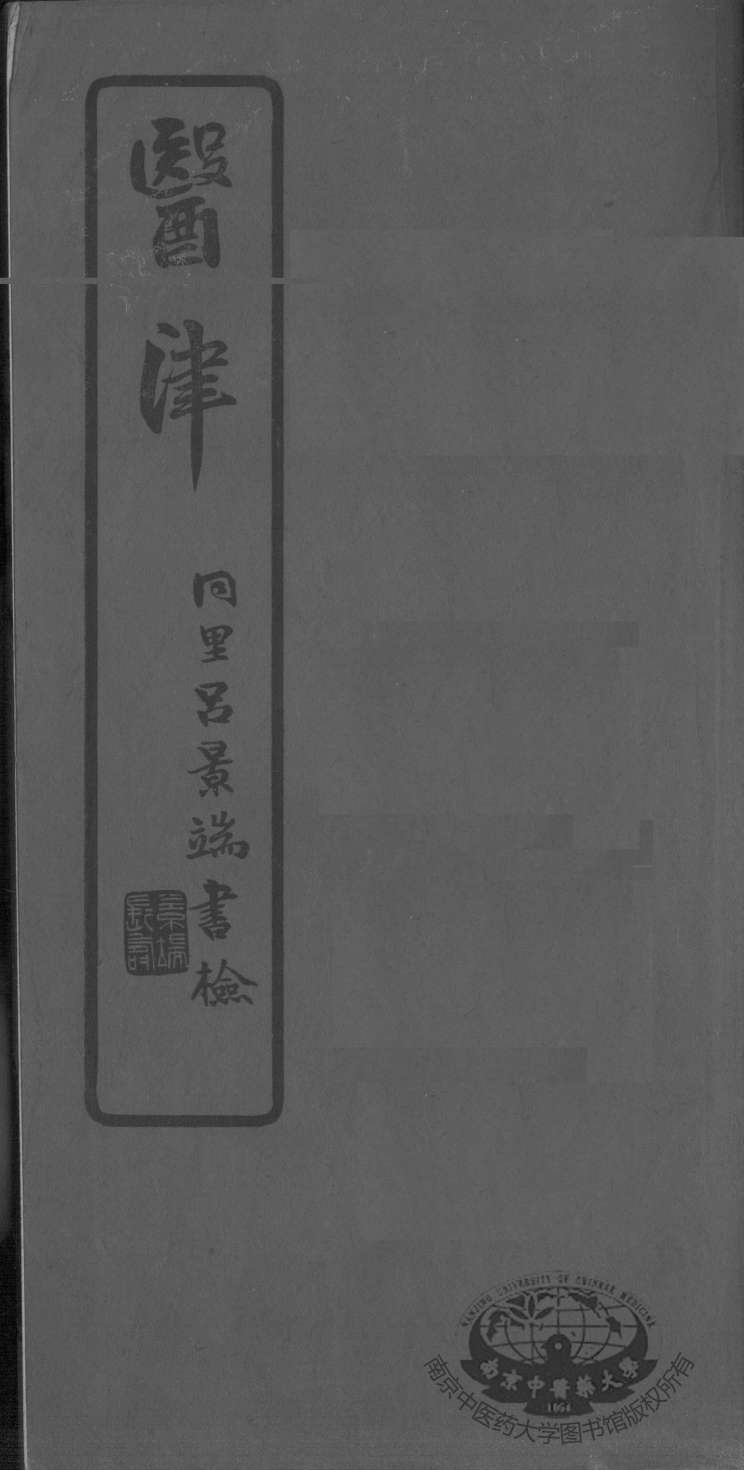 醫津
同里呂景端書檢
景端長壽
NANJING UNIVERSITY OF CHINESE MEDICINE
南京中醫藥大學
1954
南京中医药大学图书馆版权所有